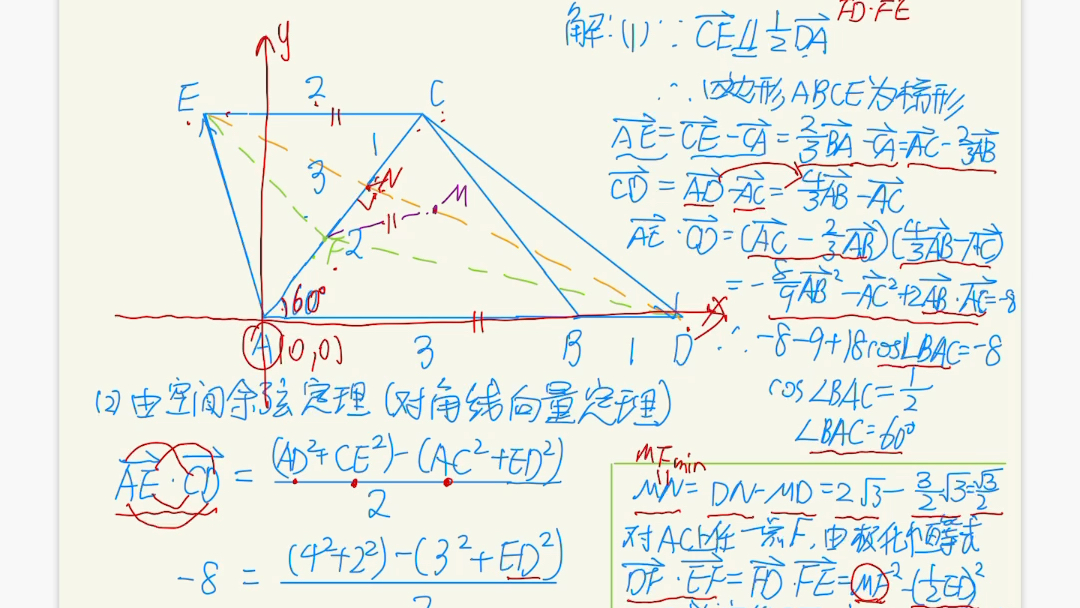 FD·FE
解:(1) ∵ CE∥½DA
∴ 四边形ABCE为梯形
AE = CE - CA = 2/3 BA - CA = AC - 2/3 AB
CD = AD - AC = 4/3 AB - AC
AE · CD = (AC - 2/3 AB)(4/3 AB - AC)
= -8/9 AB² - AC² + 2AB · AC = -8
∴ -8-9+18cos∠BAC=-8
cos∠BAC = 1/2
∠BAC = 60°
y
E 2 C
1
3 N
M
F 2
60° x
A (0,0) 3 B 1 D
(2) 由空间余弦定理 (对角线向量定理)
AE · CD = ((AD²+CE²)-(AC²+ED²))/2
-8 = ((4²+2²)-(3²+ED²))/2
MF min
MN = DN - MD = 2√3 - 3/2 √3 = √3/2
对AC上任一点F, 由极化恒等式
DF · EF = FD · FE = MF² - (½ED)²